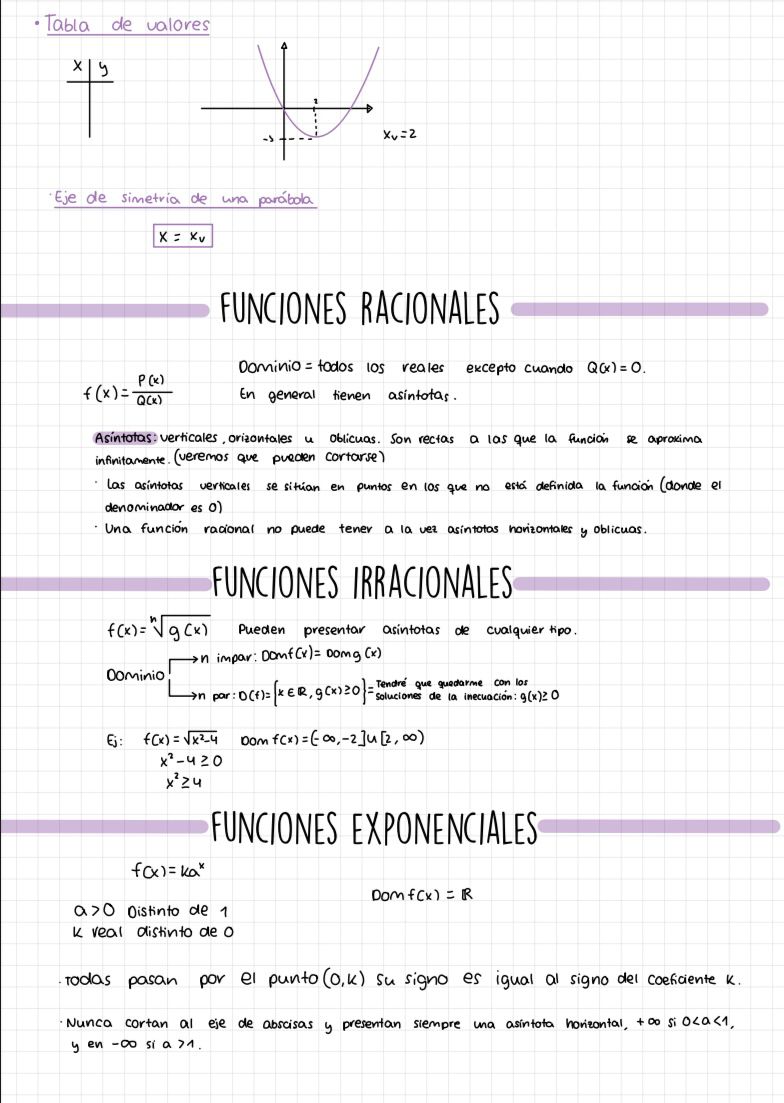 • Tabla de valores
x | y
2
-3
xᵥ=2
· Eje de simetría de una parábola
x = xᵥ
FUNCIONES RACIONALES
f(x)= P(x)/Q(x)
Dominio = todos los reales excepto cuando Q(x)=0.
En general tienen asíntotas.
Asíntotas: verticales, orizontales u oblicuas. Son rectas a las que la función se aproxima
infinitamente. (veremos que pueden cortarse)
· Las asíntotas verticales se sitúan en puntos en los que no está definida la función (donde el
denominador es 0)
· Una función racional no puede tener a la vez asíntotas horizontales y oblicuas.
FUNCIONES IRRACIONALES
f(x)= ⁿ√g(x) Pueden presentar asíntotas de cualquier tipo.
Dominio
→n impar: Domf(x)= Domg(x)
→n par: D(f)={x∈ℝ, g(x)≥0}= Tendré que quedarme con las
soluciones de la inecuación: g(x)≥0
Ej: f(x)=√x²-4 Dom f(x)=(-∞,-2]u[2,∞)
x²-4≥0
x²≥4
FUNCIONES EXPONENCIALES
f(x)=kaˣ
Dom f(x) = ℝ
a>0 Distinto de 1
K real distinto de 0
· Todas pasan por el punto (0,K) su signo es igual al signo del coeficiente K.
· Nunca cortan al eje de abscisas y presentan siempre una asíntota horizontal, +∞ si 0<a<1,
y en -∞ si a>1.